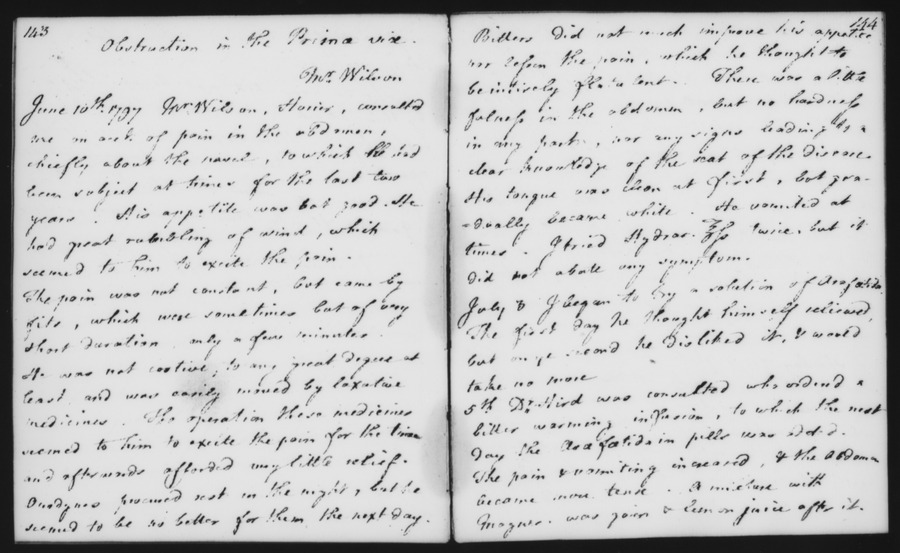 143
Obstruction in the Primæ viæ.
Mr. Wilson
June 10th. 1797 Mr. Wilson, Hosier, consulted
me on acct. of pain in the abdomen,
chiefly about the navel, to which he had
been subject at times for the last two
years. His appetite was but good. He
had great rumbling of wind, which
seemed to him to excite the pain.
The pain was not constant, but came by
fits, which were sometimes but of very
short duration only a few minutes.
He was not costive, to any great degree at
least, and was easily moved by laxative
medicines. The operation these medicines
seemed to him to excite the pain for the time
and afterwards afforded very little relief.
Anodynes procured rest in the night, but he
seemed to be no better for them the next day.
144
Bitters did not much improve his appetite
nor lessen the pain, which he thought to
be intirely flatulent. There was a little
fulness in the abdomen, but no hardness
in any part, nor any signs leading to a
clear knowledge of the seat of the disease.
His tongue was clean at first, but gra-
-dually became white. He vomited at
times. I tried Hydrar. twice, but it
did not abate any symptom.
July 3 I began to try a solution of Asafœtida.
The first day he thought himself relieved,
but on ye second he disliked it, & would
take no more
5th Dr. Hird was consulted who ordered a
bitter warming infusion, to which the next
day the Asafœtida in pills was added.
The pain & vomiting increased, & the abdomen
became more tense. A mixture with
Magnes. was given & lemon juice after it.